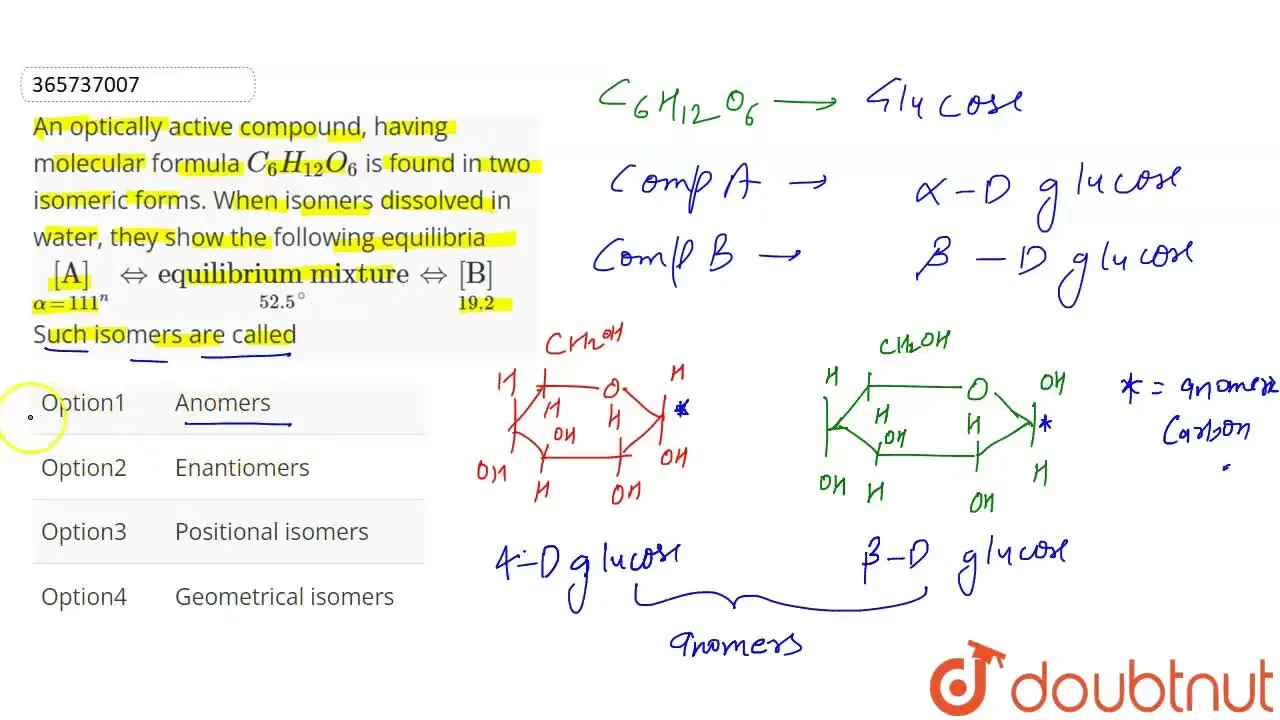 365737007
An optically active compound, having
molecular formula C₆H₁₂O₆ is found in two
isomeric forms. When isomers dissolved in
water, they show the following equilibria
[A] ⇔ equilibrium mixture ⇔ [B]
α = 111ⁿ 52.5° 19.2
Such isomers are called
Option1 Anomers
Option2 Enantiomers
Option3 Positional isomers
Option4 Geometrical isomers
C₆H₁₂O₆ → Glucose
Comp A → α-D glucose
Comp B → β-D glucose
CH₂OH
H O H
H H *
OH
OH H OH OH
CH₂OH
H O OH
H H *
OH
OH H OH H
* = anomeric
Carbon
α-D glucose
β-D glucose
anomers
doubtnut